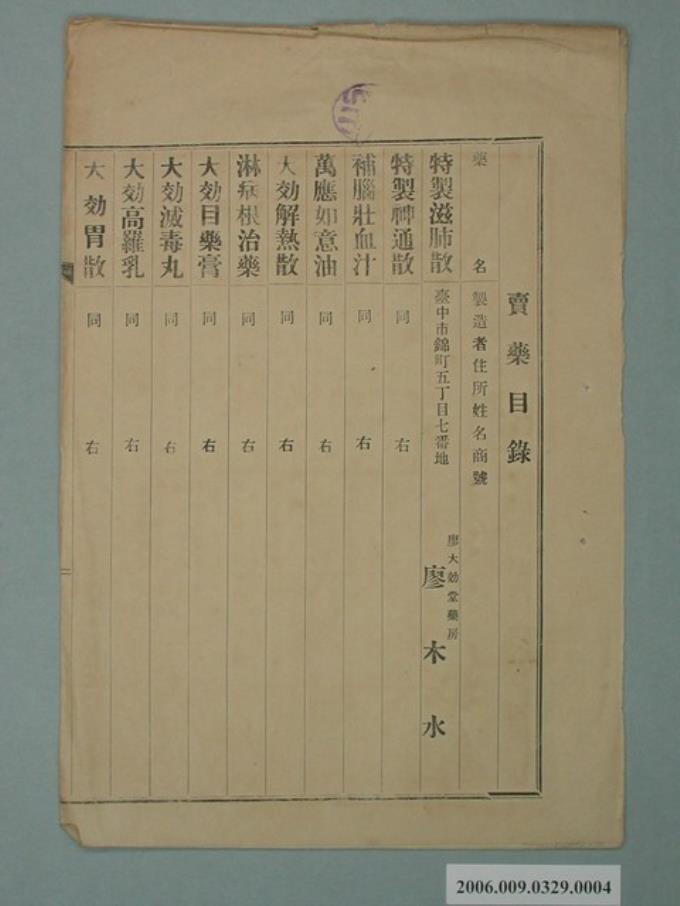 賣藥目錄
藥名 製造者住所姓名商號
特製滋肺散 臺中市錦町五丁目七番地 廖大効堂藥房 廖木水
特製神通散 同右
補腦壯血汁 同右
萬應如意油 同右
大効解熱散 同右
淋病根治藥 同右
大効目藥膏 同右
大効滅毒丸 同右
大効高羅乳 同右
大効胃散 同右
2006.009.0329.0004